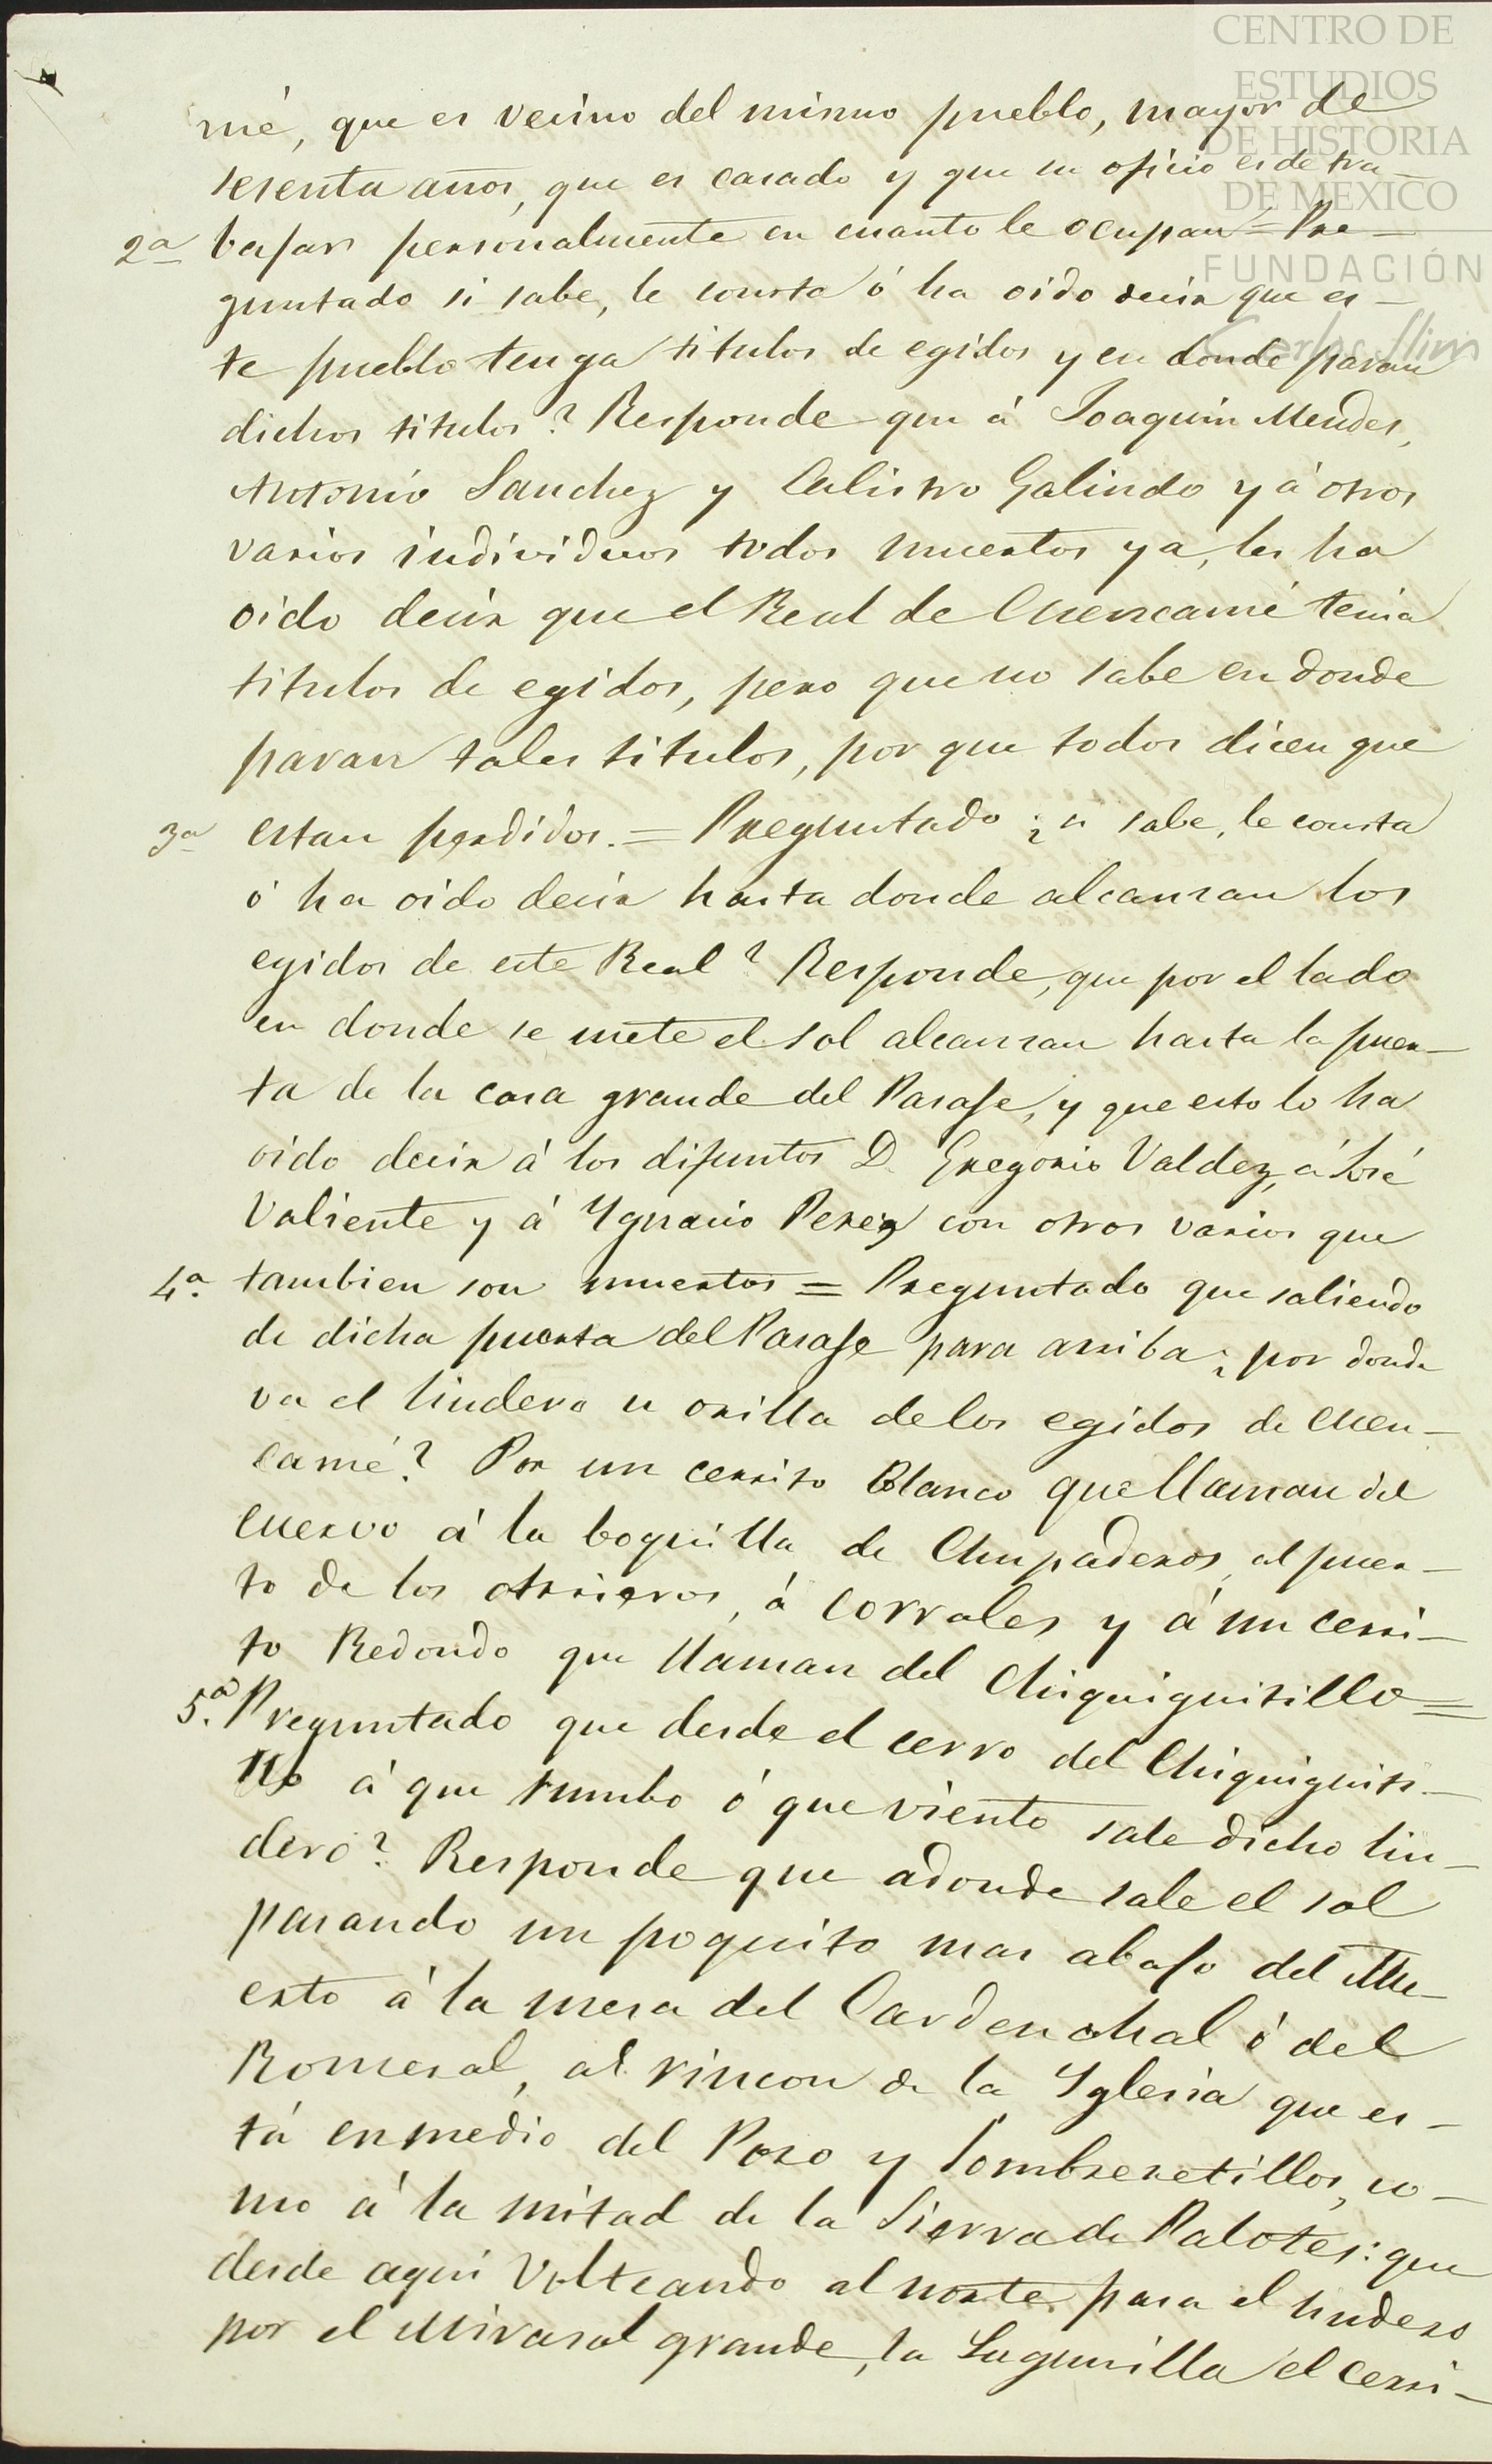 CENTRO DE
ESTUDIOS
DE HISTORIA
DE MEXICO
FUNDACIÓN
Carlos Slim
mé, que es vecino del mismo pueblo, mayor de
sesenta años, que es casado y que su oficio es de tra-
2a bajar personalmente en cuanto le ocupan = Pre-
guntado si sabe, le consta ó ha oido decir que es-
te pueblo tenga titulos de egidos y en donde paran
dichos titulos? Responde que á Joaquin Mendes,
Antonio Sanchez y Calistro Galindo y á otros
varios individuos todos muertos ya, les ha
oido decir que el Real de Cuencamé tenia
titulos de egidos, pero que no sabe en donde
paran tales titulos, por que todos dicen que
3a estan perdidos. = Preguntado ¿si sabe, le consta
ó ha oido decir hasta donde alcansan los
egidos de este Real? Responde, que por el lado
en donde se mete el sol alcansan hasta la puer-
ta de la casa grande del Pasaje, y que esto lo ha
oido decir á los difuntos D. Gregorio Valdez, á José
Valiente y á Ygnacio Perez con otros varios que
4a. tambien son muertos = Preguntado que saliendo
de dicha puerta del Pasaje para arriba ¿por donde
va el lindero u orilla de los egidos de Cuen-
camé? Por un cerrito Blanco que llaman del
Cuervo á la boquilla de Chupaderos, al puer-
to de los Arrieros, á Corrales y á un cerri-
to Redondo que llaman del Chiquiguitillo =
5a. Preguntado que desde el cerro del Chiquiguiti-
llo á que rumbo ó que viento sale dicho lin-
dero? Responde que adonde sale el sol
pasando un poquito mas abajo del Mu-
erto á la mesa del Cardenchal ó del
Romeral, al rincon de la Yglesia que es-
tá en medio del Poso y Sombreretillos, co-
mo á la mitad de la Sierra de Palotes: que
desde aqui Volteando al norte para el lindero
por el Mirasol grande, la Lagunilla el cerri-